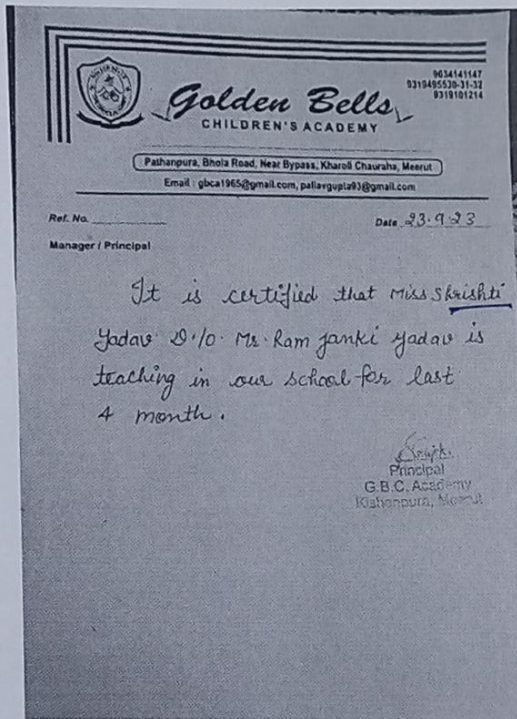 9634141147
9319495530-31-32
9319101214
Golden Bells
CHILDREN'S ACADEMY
Pathanpura, Bhola Road, Near Bypass, Kharoli Chauraha, Meerut
Email : gbca1965@gmail.com, pallavgupta93@gmail.com
Ref. No.
Date 23.9.23
Manager / Principal
It is certified that Miss Shrishti
Yadav D/o Mr. Ram Janki Yadav is
teaching in our school for last
4 month.
Principal
G.B.C. Academy
Kishanpura, Meerut